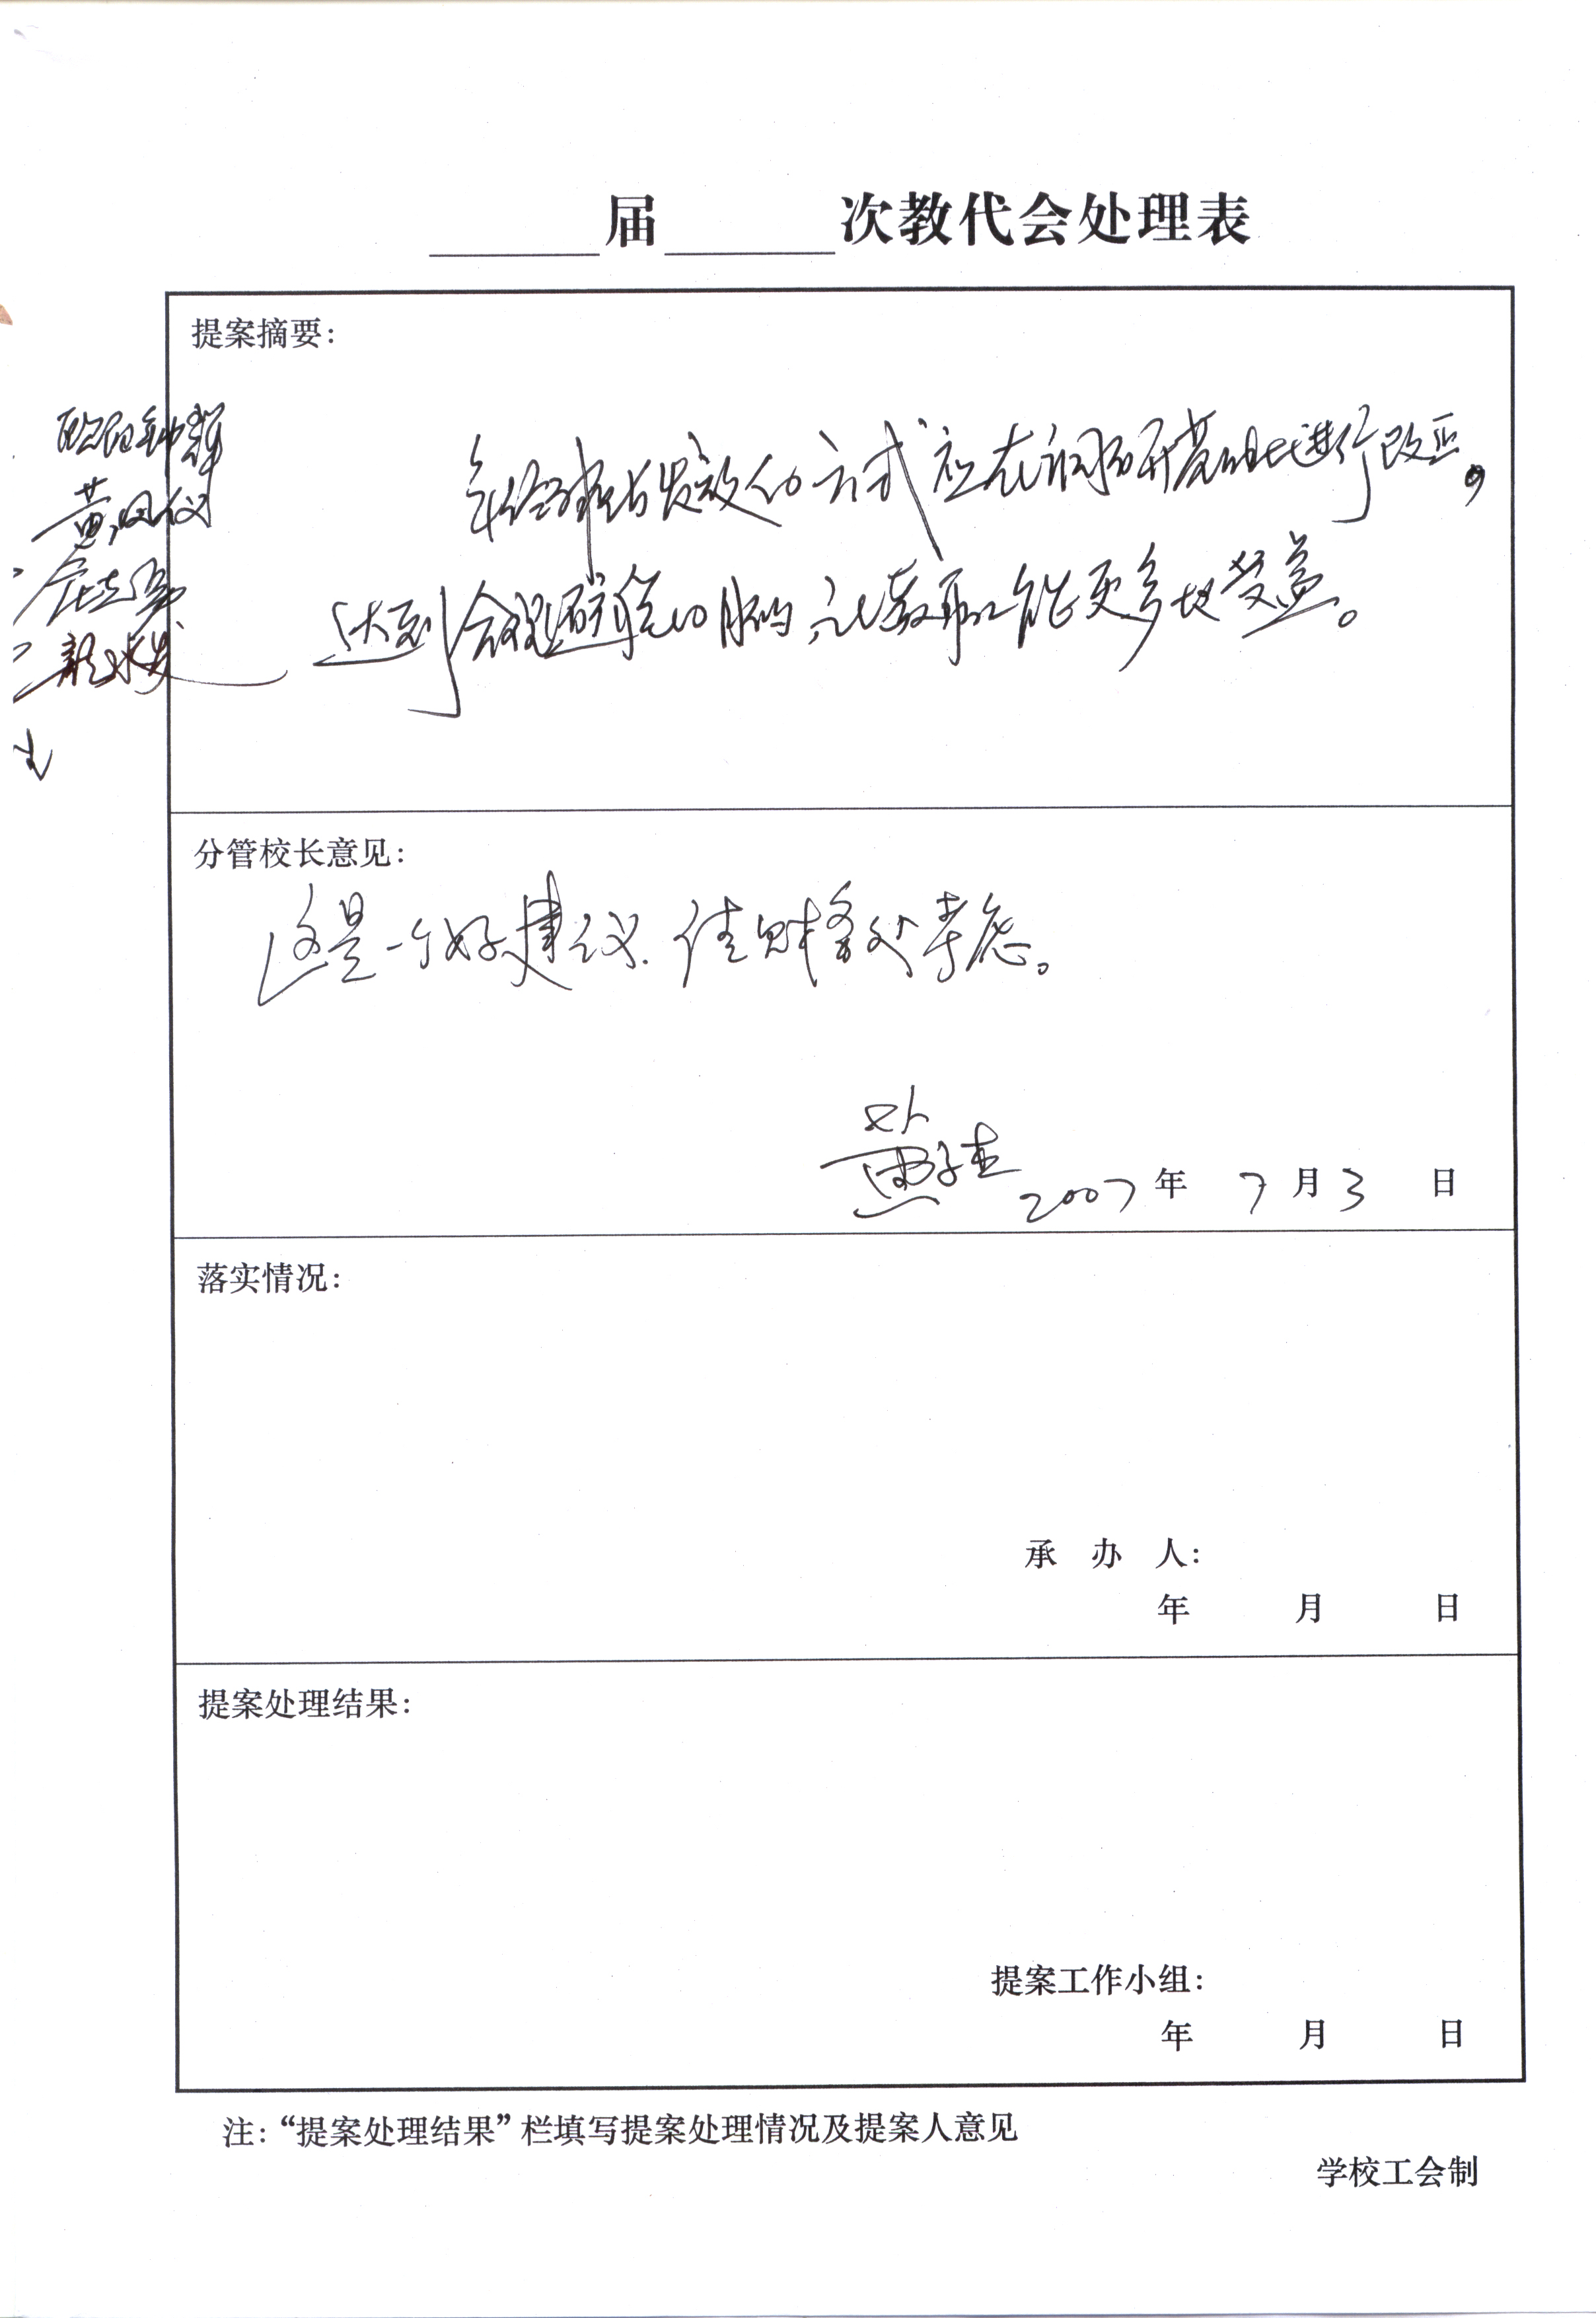 届 次教代会处理表
提案摘要：
欧阳钟辉
黄凤仪
年终津贴发放的方式应在调研基础上进行改正，
达到合理避税的目的，让教职工能更多地受益。
分管校长意见：
这是一个好建议，请财务处考虑。
2007年 7月3 日
落实情况：
承 办 人：
年 月 日
提案处理结果：
提案工作小组：
年 月 日
注：“提案处理结果”栏填写提案处理情况及提案人意见
学校工会制